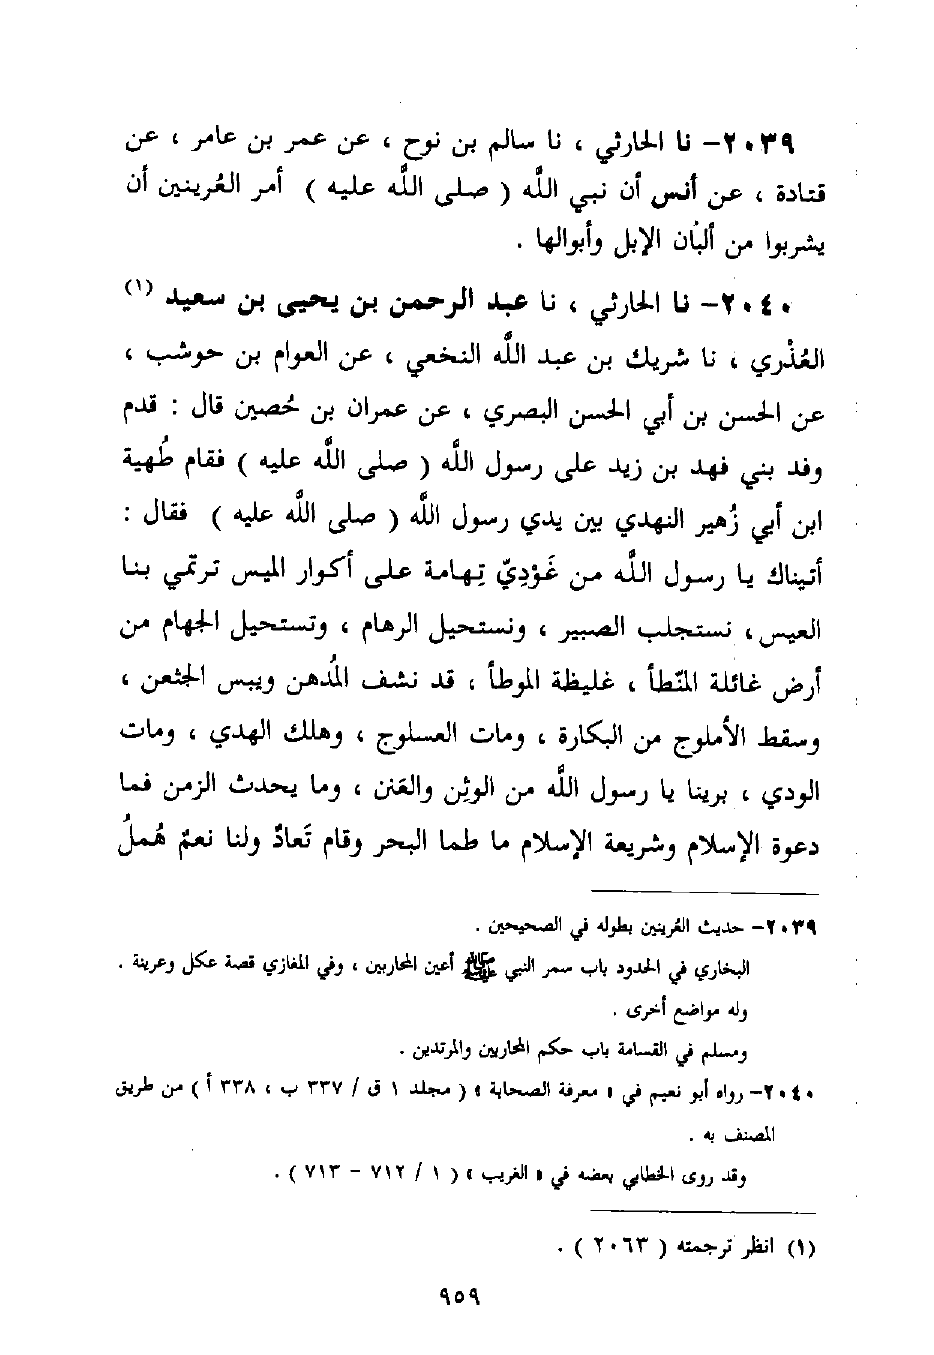 ٢٠٣٩- نا الحارثي ، نا سالم بن نوح ، عن عمر بن عامر ، عن
قتادة ، عن أنس أن نبي اللَّه ( صلى اللَّه عليه ) أمر العُرينين أن
يشربوا من ألبَان الإبل وأبوالها .
٢٠٤٠- نا الحارثي ، نا عبد الرحمن بن يحيى بن سعيد (١)
العُذْري ، نا شريك بن عبد اللَّه النخعي ، عن العوام بن حوشب ،
عن الحسن بن أبي الحسن البصري ، عن عمران بن حُصين قال : قدم
وفد بني فهد بن زيد على رسول اللَّه ( صلى اللَّه عليه ) فقام طُهية
ابن أبي زُهير النهدي بين يدي رسول اللَّه ( صلى اللَّه عليه ) فقال :
أتيناك يا رسول اللَّه من غَوْدِيّ تِهامة على أكوار الميس ترتمي بنا
العيس، نستجلب الصبير ، ونستحيل الرهام ، وتستحيل الجهام من
أرض غائلة المنّطأ ، غليظة الموطأ ، قد نشف المُدهن ويبس الجثعن ،
وسقط الأملوج من البكارة ، ومات العسلوج ، وهلك الهدي ، ومات
الودي ، برينا يا رسول اللَّه من الوثِن والعَنن ، وما يحدث الزمن فما
دعوة الإسلام وشريعة الإسلام ما طما البحر وقام تَعادٌ ولنا نعمٌ هُملُ
٢٠٣٩- حديث العُرينين بطوله في الصحيحين .
البخاري في الحدود باب سمر النبي ﷺ أعين المحاربين ، وفي المغازي قصة عكل وعرينة .
وله مواضع أخرى .
ومسلم في القسامة باب حكم المحاربين والمرتدين .
٢٠٤٠- رواه أبو نعيم في « معرفة الصحابة » ( مجلد ١ ق / ٣٣٧ ب ، ٣٣٨ أ ) من طريق
المصنف به .
وقد روى الخطابي بعضه في « الغريب » ( ١ / ٧١٢ - ٧١٣ ) .
(١) انظر ترجمته ( ٢٠٦٣ ) .
٩٥٩